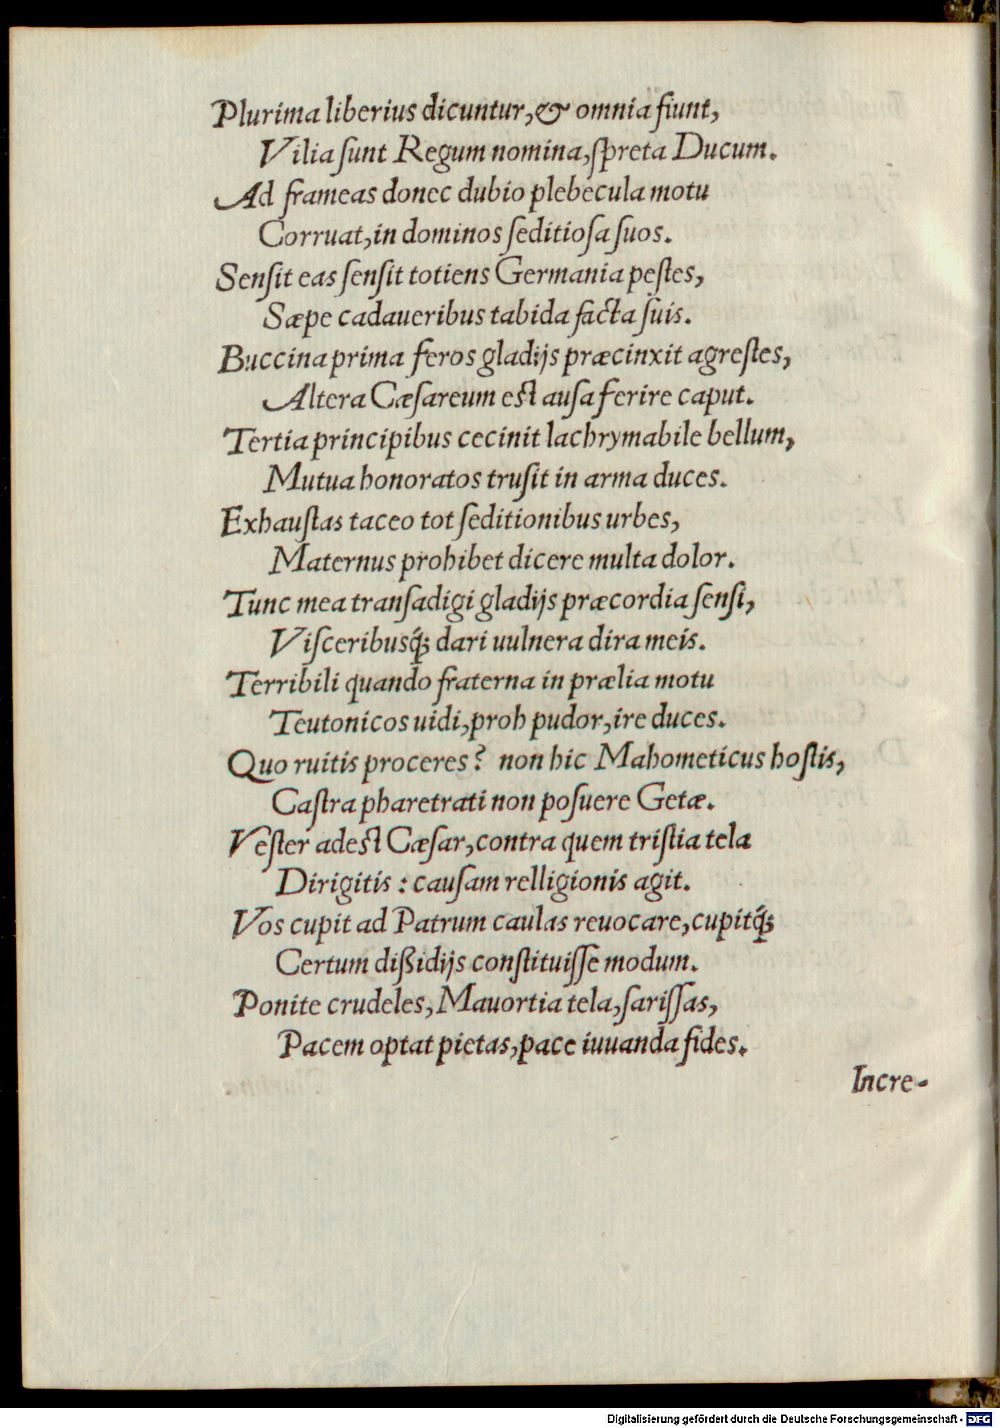 Plurima liberius dicuntur, & omnia fiunt,
Vilia ſunt Regum nomina, ſpreta Ducum.
Ad frameas donec dubio plebecula motu
Corruat, in dominos ſeditioſa ſuos.
Senſit eas ſenſit totiens Germania peſtes,
Sæpe cadaueribus tabida facta ſuis.
Buccina prima feros gladijs præcinxit agreſtes,
Altera Cæſareum eſt auſa ferire caput.
Tertia principibus cecinit lachrymabile bellum,
Mutua honoratos truſit in arma duces.
Exhauſtas taceo tot ſeditionibus urbes,
Maternus prohibet dicere multa dolor.
Tunc mea tranſadigi gladijs præcordia ſenſi,
Viſceribusq́; dari uulnera dira meis.
Terribili quando fraterna in prælia motu
Teutonicos uidi, proh pudor, ire duces.
Quo ruitis proceres? non hic Mahometicus hoſtis,
Caſtra pharetrati non poſuere Getæ.
Veſter adeſt Cæſar, contra quem triſtia tela
Dirigitis: cauſam relligionis agit.
Vos cupit ad Patrum caulas reuocare, cupitq́;
Certum dißidijs conſtituiſſe modum.
Ponite crudeles, Mauortia tela, ſariſſas,
Pacem optat pietas, pace iuuanda fides.
Incre-
Digitalisierung gefördert durch die Deutsche Forschungsgemeinschaft - DFG